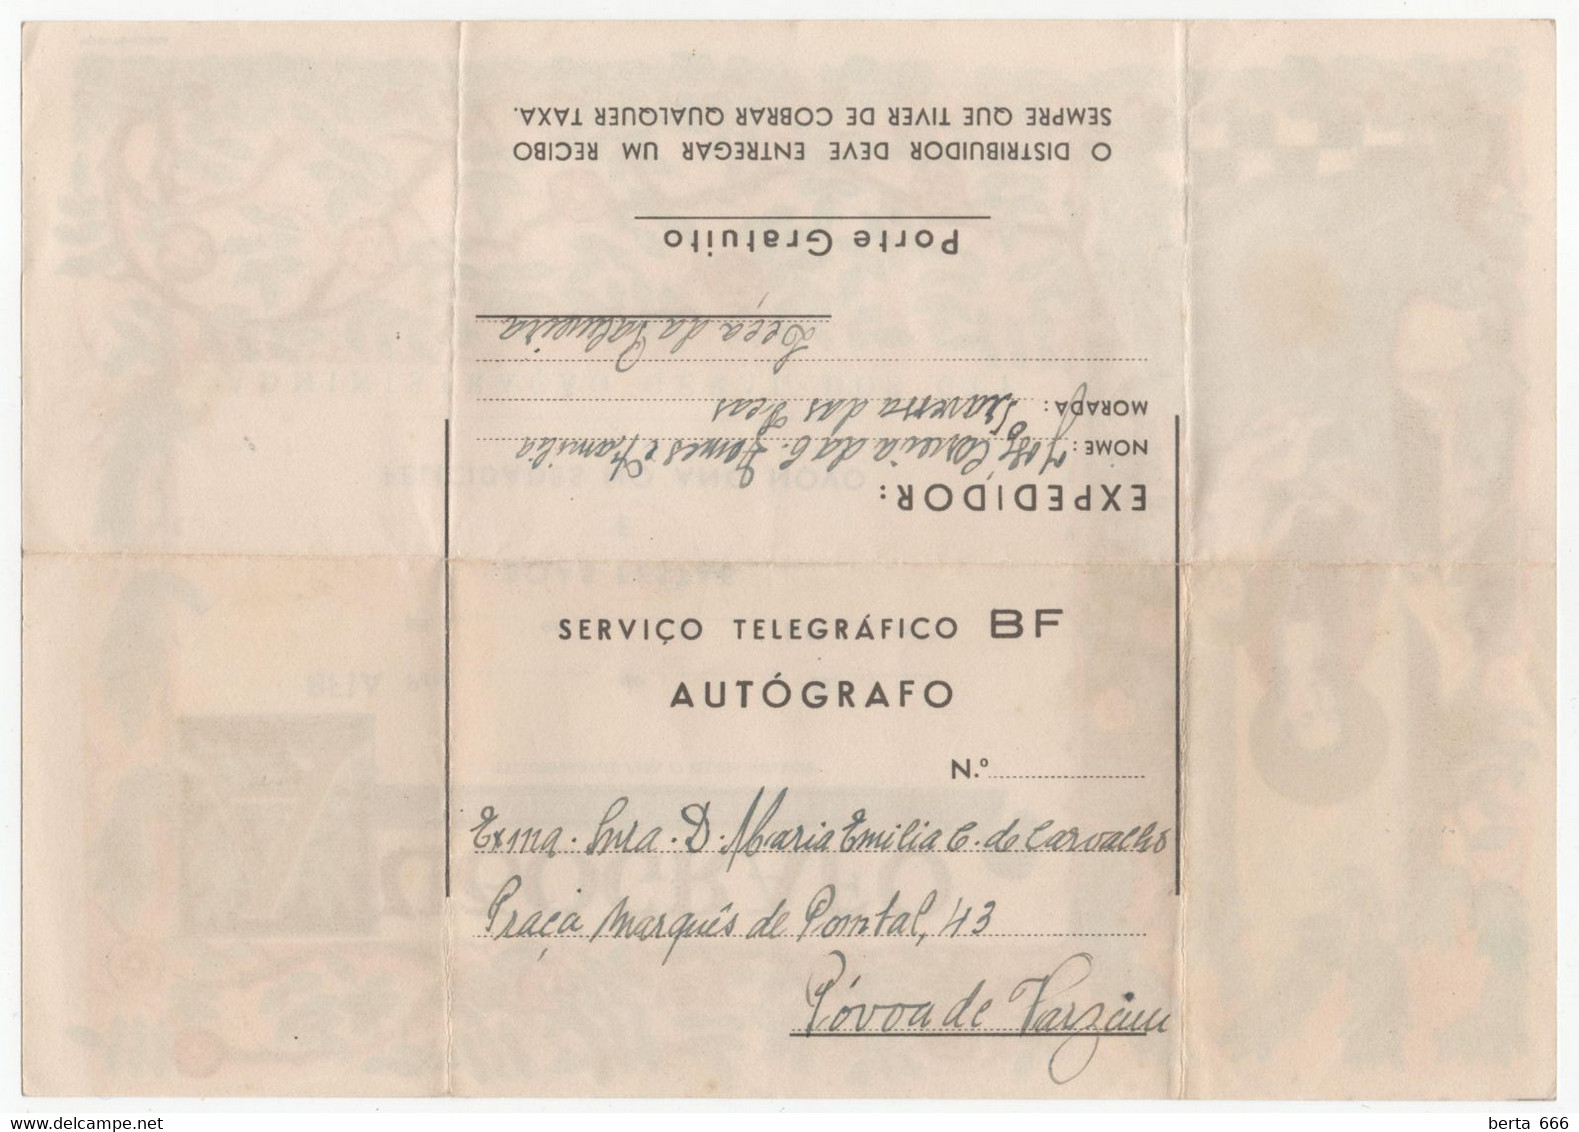 O DISTRIBUIDOR DEVE ENTREGAR UM RECIBO
SEMPRE QUE TIVER DE COBRAR QUALQUER TAXA.
Porte Gratuito
EXPEDIDOR:
NOME: José Correia da C. Gomes e Familia
MORADA: Travessa das
Leça da Palmeira
SERVIÇO TELEGRÁFICO BF
AUTÓGRAFO
N.º
Exma. Snra. D. Maria Emilia C. de Carvalho
Praça Marquês de Pombal, 43
Póvoa de Varzim
berta 666